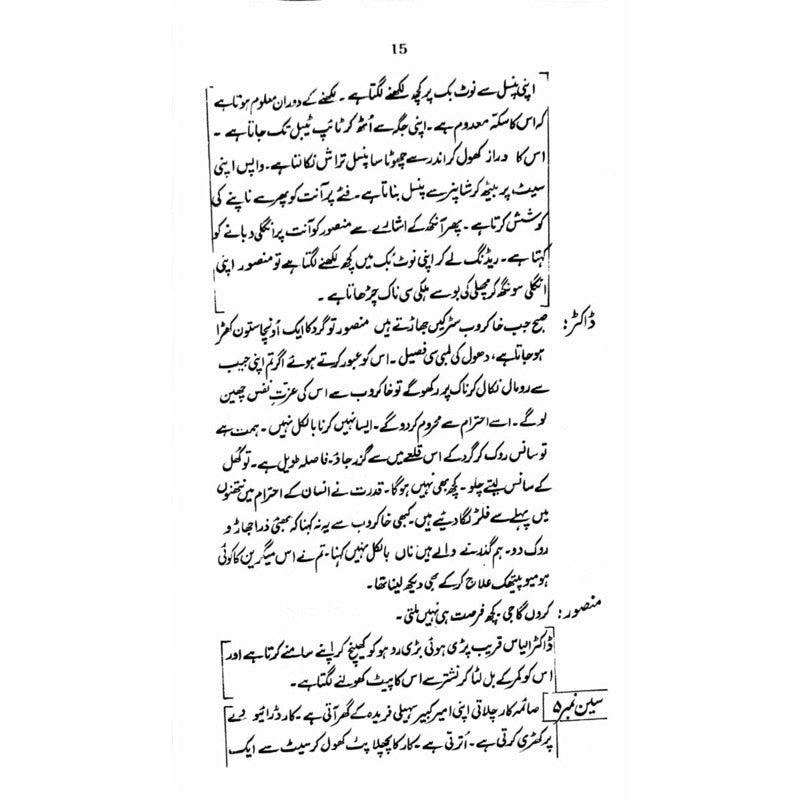 15
اپنی پنسل سے نوٹ بک پر کچھ لکھنے لگتا ہے ۔ لکھنے کے دوران معلوم ہوتا ہے
کہ اس کا سکتہ معدوم ہے ۔ اپنی جگہ سے اُٹھ کر ٹائپ ٹیبل تک جاتا ہے ۔
اس کا دراز کھول کر اندر سے چھوٹا سا پنسل تراش نکالتا ہے ۔ واپس اپنی
سیٹ پر بیٹھ کر شاپنر سے پنسل بناتا ہے ۔ فٹے پر آنت کو پھر سے ناپنے کی
کوشش کرتا ہے ۔ پھر آنکھ کے اشارے سے منصور کو آنت پر انگلی دبانے کو
کہتا ہے ۔ ریڈنگ لے کر اپنی نوٹ بک میں کچھ لکھنے لگتا ہے تو منصور اپنی
انگلی سونگھ کر مچھلی کی بو سے ہلکی سی ناک چڑھاتا ہے ۔
ڈاکٹر: صبح جب خاکروب سڑکیں جھاڑتے ہیں منصور تو گرد کا ایک اُونچا ستون کھڑا
ہو جاتا ہے، دھول کی لمبی سی فصیل ۔ اس کو عبور کرتے ہوئے اگر تم اپنی جیب
سے رومال نکال کر ناک پر رکھو گے تو خاکروب سے اس کی عزتِ نفس چھین
لو گے ۔ اسے احترام سے محروم کر دو گے ۔ ایسا نہیں کرنا بالکل نہیں ۔ ہمت ہے
تو سانس روک کر گرد کے اس قلعے میں سے گزر جاؤ ۔ فاصلہ طویل ہے ۔ تو کھل
کے سانس لیتے چلو ۔ کچھ بھی نہیں ہوگا ۔ قدرت نے انسان کے احترام میں نتھنوں
میں پہلے سے فلٹر لگا دیئے ہیں ۔ کبھی خاکروب سے یہ نہ کہنا کہ بھئی ذرا جھاڑو
روک دو ۔ ہم گذرنے والے ہیں ناں بالکل نہیں کہنا ۔ تم نے اس میگرین کا کوئی
ہومیو پیتھک علاج کر کے بھی دیکھ لینا تھا ۔
منصور: کروں گا جی ۔ کچھ فرصت ہی نہیں ملتی ۔
ڈاکٹر الیاس قریب پڑی ہوئی بڑی رہو کو کھینچ کر اپنے سامنے کرتا ہے اور
اس کو کمر کے بل لٹا کر نشتر سے اس کا پیٹ کھولنے لگتا ہے ۔
سین نمبر ۵ صائمہ کار چلاتی اپنی امیر کبیر سہیلی فریدہ کے گھر آتی ہے ۔ کار ڈرائیو وے
پر کھڑی کرتی ہے ۔ اُترتی ہے ۔ کار کا پچھلا پٹ کھول کر سیٹ سے ایک